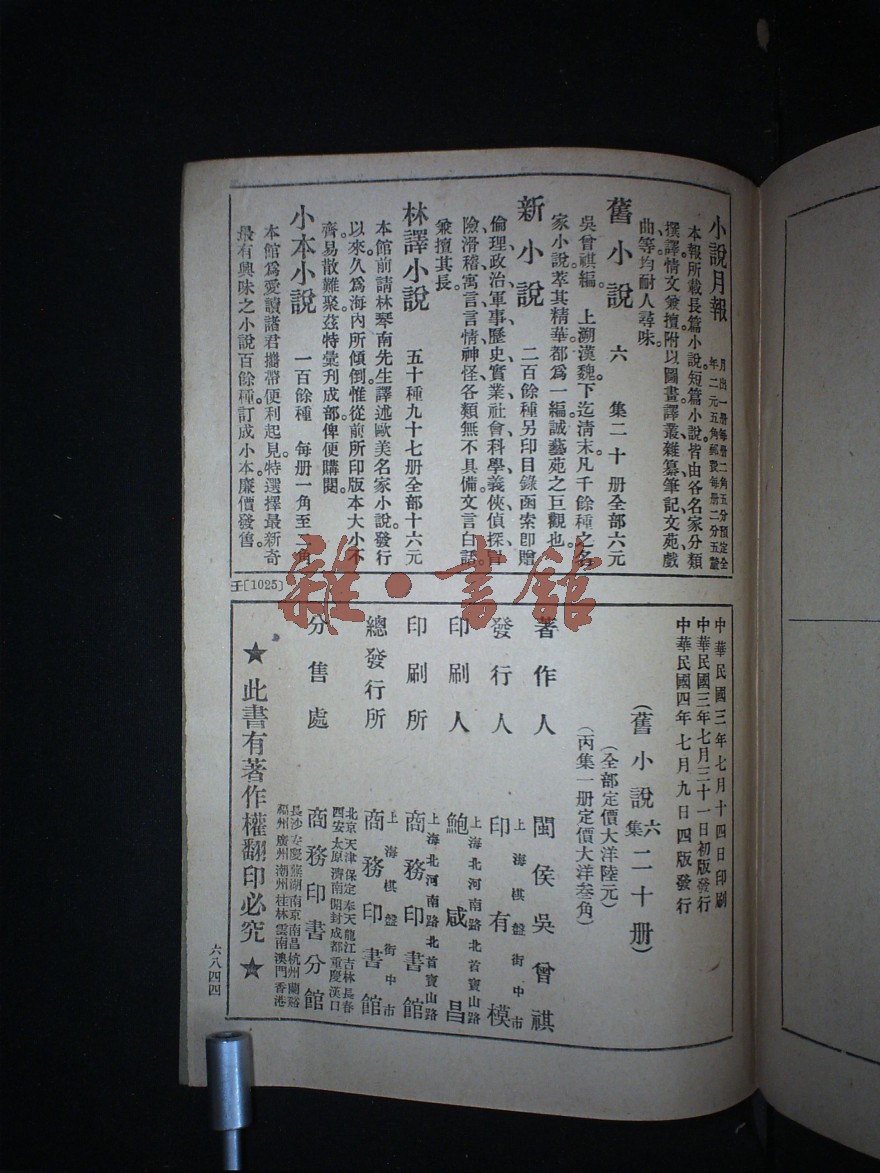 小說月報
月出一册每册二角五分預定全
年二元五角郵費每册二分五釐
本報所載長篇小說短篇小說皆由各名家分類
撰譯情文兼擅附以圖畫譯叢雜纂筆記文苑戲
曲等均耐人尋味
舊小說 六集二十册全部六元
吳曾祺編。上溯漢魏。下迄清末。凡千餘種之名
家小說。萃其精華。都爲一編。誠藝苑之巨觀也。
新小說 二百餘種另印目錄函索卽贈
倫理、政治、軍事、歷史、實業、社會、科學、義俠、偵探、冒
險、滑稽、寓言、言情、神怪、各類無不具備。文言白話。
兼擅其長。
林譯小說 五十種九十七册全部十六元
本館前請林琴南先生譯述歐美名家小說。發行
以來。久爲海內所傾倒。惟從前所印版本大小不
齊。易散難聚。茲特彙刊成部。俾便購閱。
小本小說 一百餘種 每册一角至二角
本館爲愛讀諸君攜帶便利起見。特選擇最新奇
最有興味之小說百餘種。訂成小本。廉價發售。
壬[1025]
雜·書館
中華民國三年七月十四日印刷
中華民國三年七月三十一日初版發行
中華民國四年七月九日四版發行
(舊小說六集二十册)
(全部定價大洋陸元)
(丙集一册定價大洋叁角)
著作人 閩侯吳曾祺
發行人 上海棋盤街中市 印有模
印刷人 上海北河南路北首寶山路 鮑咸昌
印刷所 上海北河南路北首寶山路 商務印書館
總發行所 上海棋盤街中市 商務印書館
分售處 北京天津保定奉天龍江吉林長春
西安太原濟南開封成都重慶漢口
商務印書分館
長沙安慶蕪湖南京南昌杭州蘭谿
福州廣州潮州桂林雲南澳門香港
★此書有著作權翻印必究★
六八四四